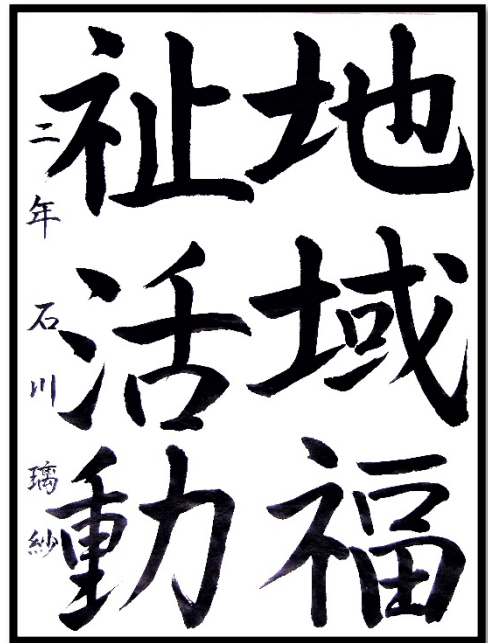 地域福
祉活動
二年 石川 璃紗